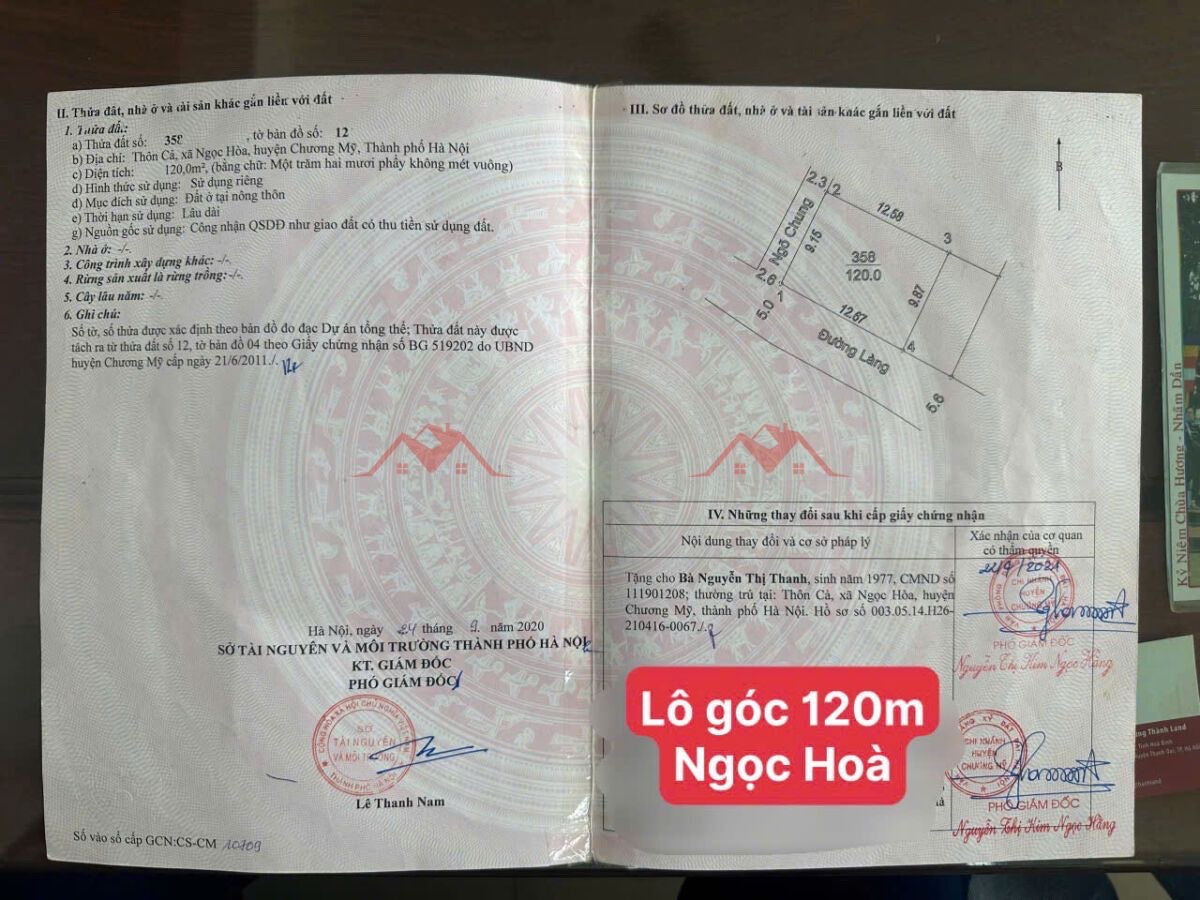 II. Thửa đất, nhà ở và tài sản khác gắn liền với đất
1. Thửa đất:
a) Thửa đất số: 358 , tờ bản đồ số: 12
b) Địa chỉ: Thôn Cả, xã Ngọc Hòa, huyện Chương Mỹ, Thành phố Hà Nội
c) Diện tích: 120,0m², (bằng chữ: Một trăm hai mươi phẩy không mét vuông)
d) Hình thức sử dụng: Sử dụng riêng
đ) Mục đích sử dụng: Đất ở tại nông thôn
e) Thời hạn sử dụng: Lâu dài
g) Nguồn gốc sử dụng: Công nhận QSDĐ như giao đất có thu tiền sử dụng đất.
2. Nhà ở: -/-
3. Công trình xây dựng khác: -/-
4. Rừng sản xuất là rừng trồng: -/-
5. Cây lâu năm: -/-
6. Ghi chú:
Số tờ, số thửa được xác định theo bản đồ đo đạc Dự án tổng thể; Thửa đất này được
tách ra từ thửa đất số 12, tờ bản đồ 04 theo Giấy chứng nhận số BG 519202 do UBND
huyện Chương Mỹ cấp ngày 21/6/2011./.
Hà Nội, ngày 24 tháng 9. năm 2020
SỞ TÀI NGUYÊN VÀ MÔI TRƯỜNG THÀNH PHỐ HÀ NỘI
KT. GIÁM ĐỐC
PHÓ GIÁM ĐỐC
CỘNG HÒA XÃ HỘI CHỦ NGHĨA VIỆT NAM
SỞ
TÀI NGUYÊN
VÀ MÔI TRƯỜNG
THÀNH PHỐ HÀ NỘI
Lê Thanh Nam
Số vào sổ cấp GCN:CS-CM 10709
III. Sơ đồ thửa đất, nhà ở và tài sản khác gắn liền với đất
B
2.3
2
12.58
3
Ngõ Chung
9.15
358
120.0
9.87
2.6
1
5.0
12.67
4
Đường Làng
5.6
IV. Những thay đổi sau khi cấp giấy chứng nhận
Nội dung thay đổi và cơ sở pháp lý
Xác nhận của cơ quan
có thẩm quyền
Tặng cho Bà Nguyễn Thị Thanh, sinh năm 1977, CMND số
111901208; thường trú tại: Thôn Cả, xã Ngọc Hòa, huyện
Chương Mỹ, thành phố Hà Nội. Hồ sơ số 003.05.14.H26-
210416-0067./.
CHI NHÁNH
HUYỆN
CHƯƠNG MỸ
PHÓ GIÁM ĐỐC
Nguyễn Thị Kim Ngọc Hằng
CHI NHÁNH
HUYỆN
CHƯƠNG MỸ
PHÓ GIÁM ĐỐC
Nguyễn Thị Kim Ngọc Hằng
Lô góc 120m
Ngọc Hoà
Kỷ Niệm Chùa Hương - Nhâm Dần